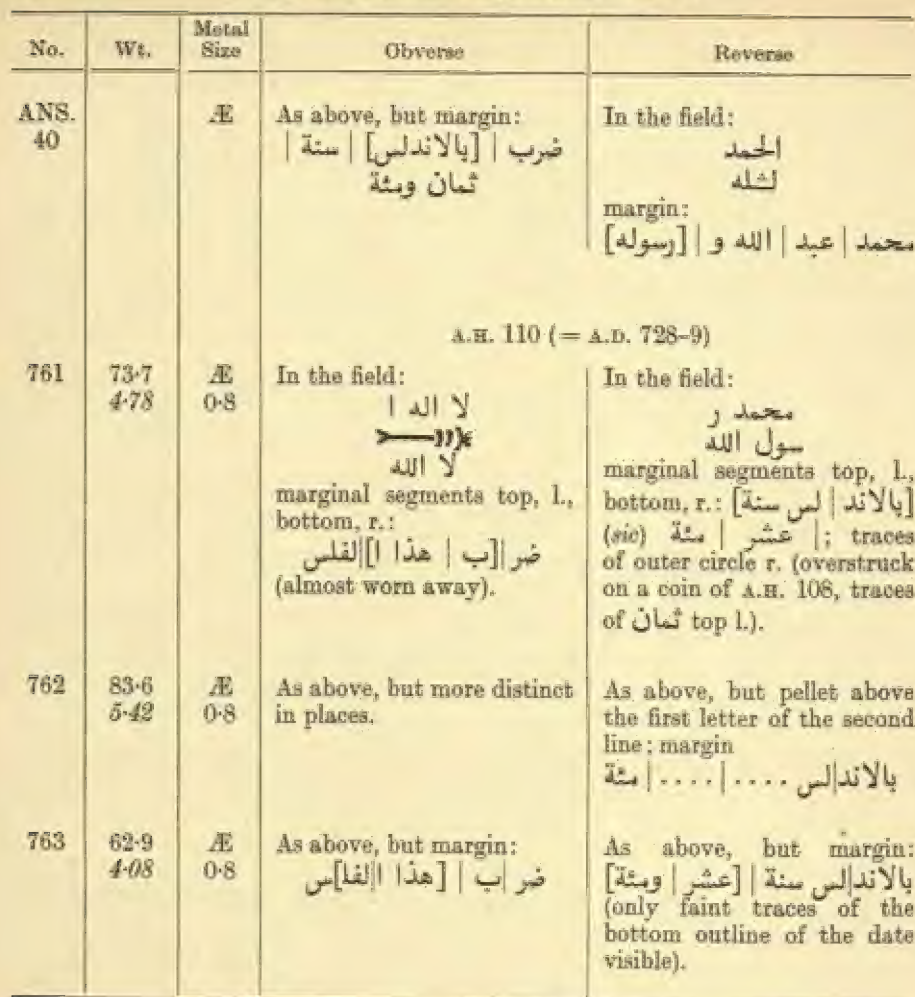 No. Wt. Metal Size Obverse Reverse
ANS. 40 Æ
As above, but margin:
ضرب | [بالاندلس] | سنة |
ثمان ومئة
In the field:
الحمد
لشله
margin:
محمد | عبد | الله و | [رسوله]
A.H. 110 (= A.D. 728–9)
761 73·7 4·78 Æ 0·8
In the field:
لا اله ا
لا الله
marginal segments top, l.,
bottom, r.:
ضر|[ب | هذا ا]|لفلس
(almost worn away).
In the field:
محمد ر
سول الله
marginal segments top, l.,
bottom, r.: [بالاند | لس سنة]
(sic) | عشر | مئة |; traces
of outer circle r. (overstruck
on a coin of A.H. 108, traces
of ثمان top l.).
762 83·6 5·42 Æ 0·8
As above, but more distinct
in places.
As above, but pellet above
the first letter of the second
line; margin
بالاند|لس ....|....| مئة
763 62·9 4·08 Æ 0·8
As above, but margin:
ضر |ب | [هذا ا|لفا]س
As above, but margin:
بالاند|لس سنة | [عشر | ومئة]
(only faint traces of the
bottom outline of the date
visible).